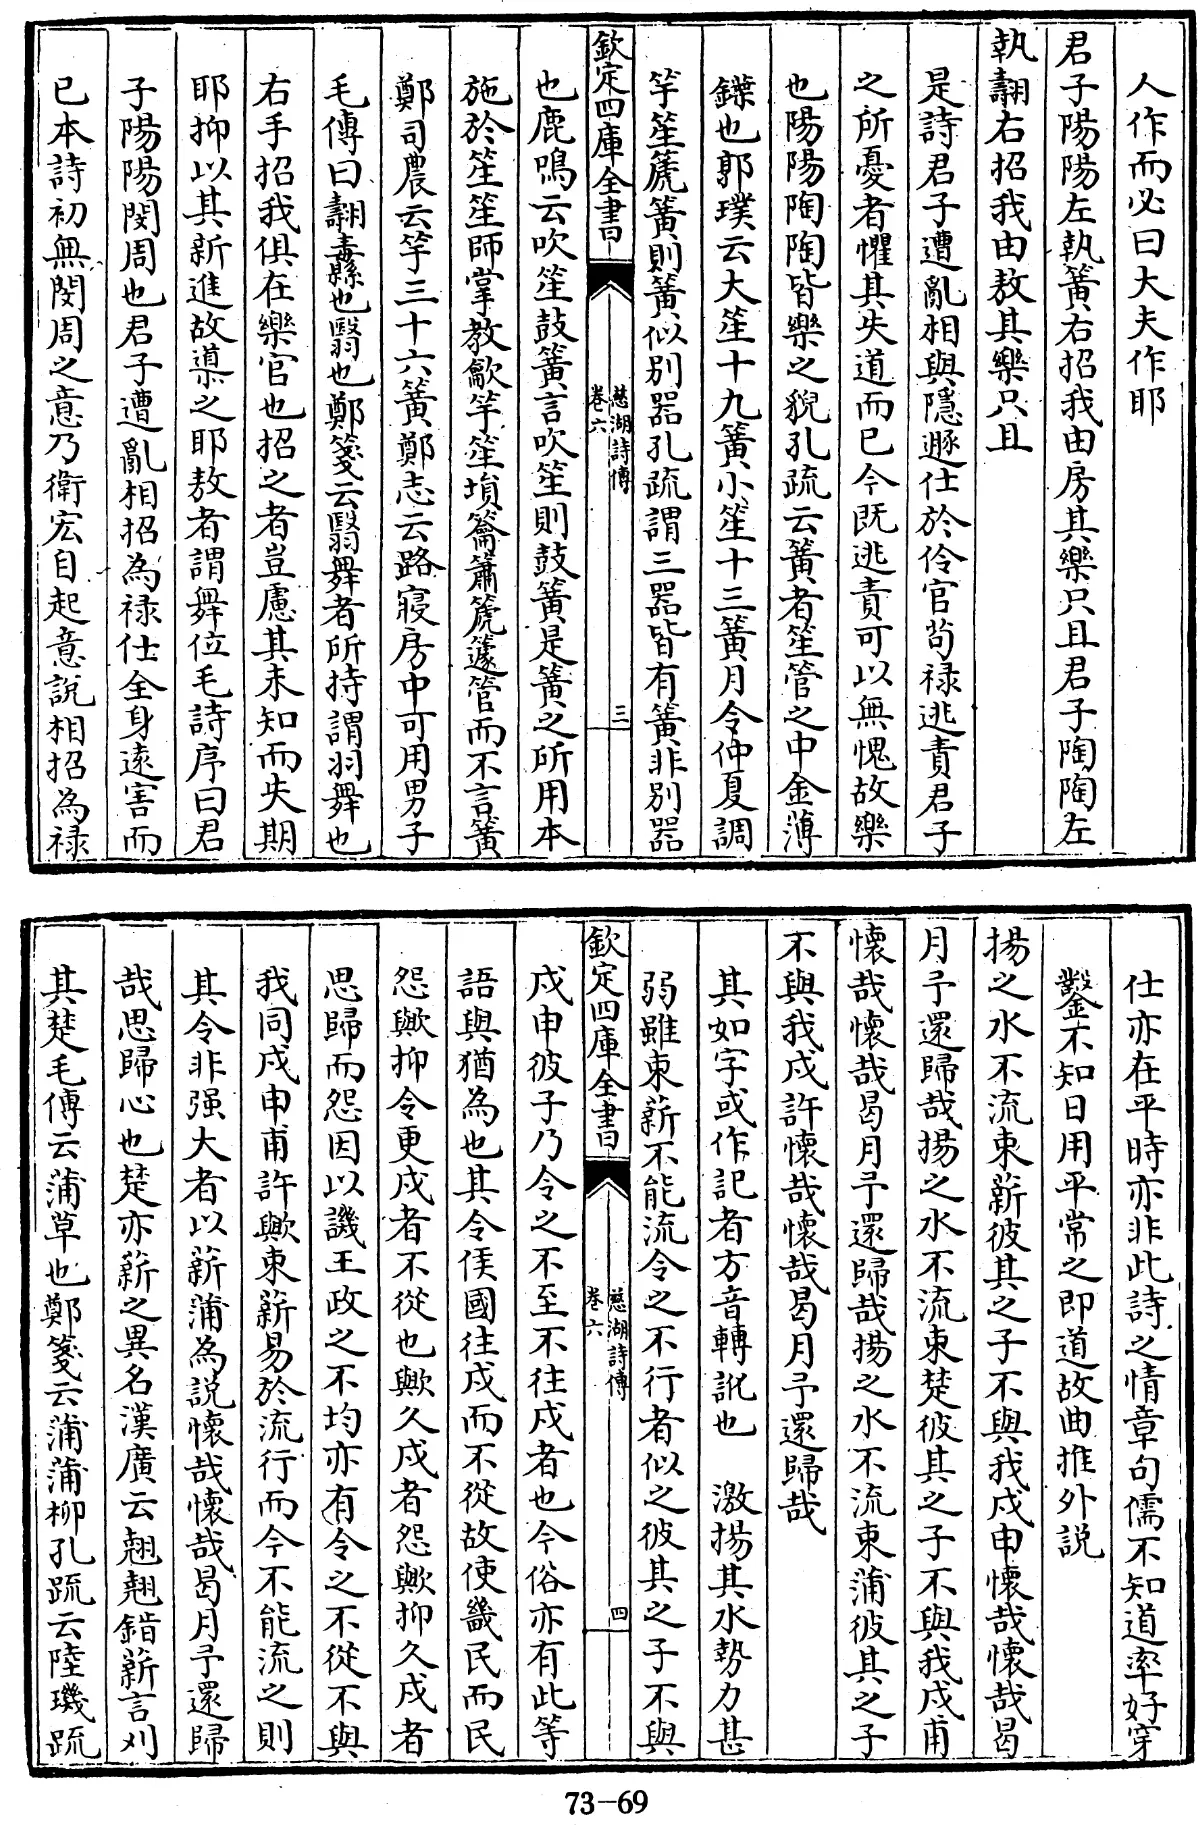 人作而必曰大夫作耶
君子陽陽左執簧右招我由房其樂只且君子陶陶左
執翿右招我由敖其樂只且
是詩君子遭亂相與隱遯仕於伶官苟禄逃責君子
之所憂者懼其失道而已今既逃責可以無愧故樂
也陽陽陶陶皆樂之貌孔疏云簧者笙管之中金薄
鐷也郭璞云大笙十九簧小笙十三簧月令仲夏調
竽笙篪簧則簧似别器孔疏謂三器皆有簧非别器
欽定四庫全書
慈湖詩傳
卷六
三
也鹿鳴云吹笙鼓簧言吹笙則鼓簧是簧之所用本
施於笙笙師掌教龡竽笙塤籥簫篪篴管而不言簧
鄭司農云竽三十六簧鄭志云路寢房中可用男子
毛傳曰翿纛也翳也鄭箋云翳舞者所持謂羽舞也
右手招我俱在樂官也招之者豈慮其未知而失期
耶抑以其新進故導之耶敖者謂舞位毛詩序曰君
子陽陽閔周也君子遭亂相招為禄仕全身遠害而
已本詩初無閔周之意乃衛宏自起意説相招為禄
仕亦在平時亦非此詩之情章句儒不知道率好穿
鑿不知日用平常之即道故曲推外説
揚之水不流束薪彼其之子不與我戍申懷哉懷哉曷
月予還歸哉揚之水不流束楚彼其之子不與我戍甫
懷哉懷哉曷月予還歸哉揚之水不流束蒲彼其之子
不與我戍許懷哉懷哉曷月予還歸哉
其如字或作記者方音轉訛也　激揚其水勢力甚
弱雖束薪不能流令之不行者似之彼其之子不與
欽定四庫全書
慈湖詩傳
卷六
四
戍申彼子乃令之不至不往戍者也今俗亦有此等
語與猶為也其令侯國往戍而不從故使畿民而民
怨歟抑令更戍者不從也歟久戍者怨歟抑久戍者
思歸而怨因以譏王政之不均亦有令之不從不與
我同戍申甫許歟束薪易於流行而今不能流之則
其令非强大者以薪蒲為説懷哉懷哉曷月予還歸
哉思歸心也楚亦薪之異名漢廣云翹翹錯薪言刈
其楚毛傳云蒲草也鄭箋云蒲蒲柳孔疏云陸璣疏
73—69